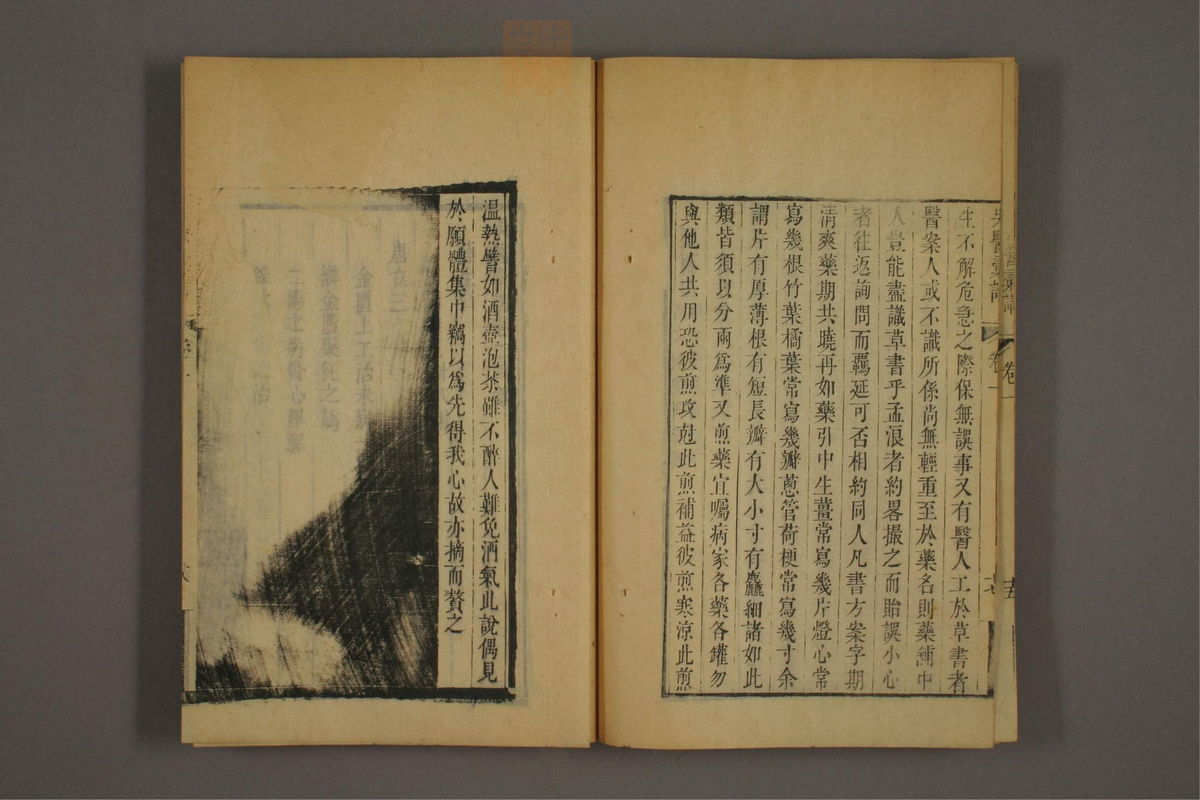 生不解危急之際保無誤事又有醫人工於草書者
醫案人或不識所係尚無輕重至於藥名則藥舖中
人豈能盡識草書乎孟浪者約畧撮之而貽誤小心
者往返詢問而羈延可否相約同人凡書方案字期
清爽藥期共曉再如藥引中生薑常寫幾片燈心常
寫幾根竹葉橘葉常寫幾瓣葱管荷梗常寫幾寸余
謂片有厚薄根有短長瓣有大小寸有麤細諸如此
類皆須以分兩爲準又煎藥宜囑病家各藥各罐勿
與他人共用恐彼煎攻尅此煎補益彼煎寒涼此煎
溫熱譬如酒壺泡茶雖不醉人難免酒氣此說偶見
於願體集中竊以爲先得我心故亦摘而贅之